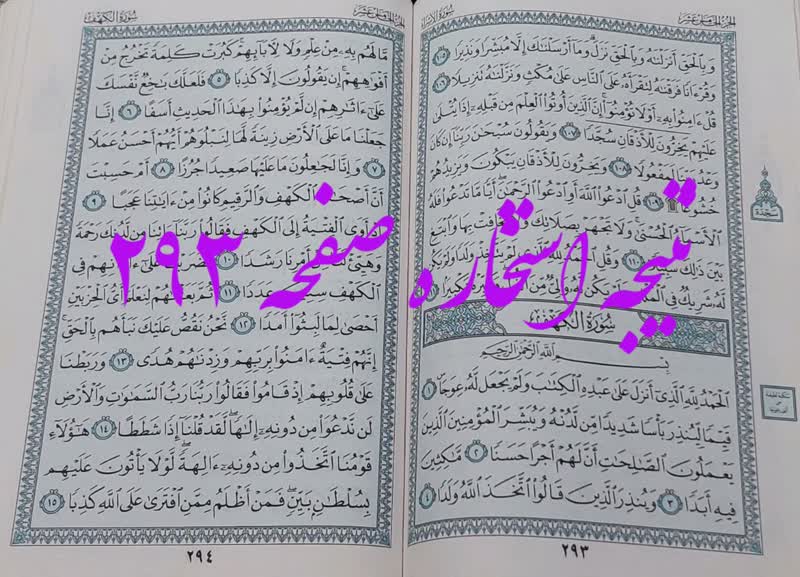 نتیجه استخاره صفحه ۲۹۳
الجزء الخامس عشر
سورة الإسراء
وَبِٱلْحَقِّ أَنزَلْنَٰهُ وَبِٱلْحَقِّ نَزَلَ وَمَآ أَرْسَلْنَٰكَ إِلَّا مُبَشِّرًا وَنَذِيرًا ١٠٥
وَقُرْءَانًا فَرَقْنَٰهُ لِتَقْرَأَهُۥ عَلَى ٱلنَّاسِ عَلَىٰ مُكْثٍ وَنَزَّلْنَٰهُ تَنزِيلًا ١٠٦
قُلْ ءَامِنُوا۟ بِهِۦٓ أَوْ لَا تُؤْمِنُوٓا۟ إِنَّ ٱلَّذِينَ أُوتُوا۟ ٱلْعِلْمَ مِن قَبْلِهِۦٓ إِذَا يُتْلَىٰ
عَلَيْهِمْ يَخِرُّونَ لِلْأَذْقَانِ سُجَّدًا ١٠٧ وَيَقُولُونَ سُبْحَٰنَ رَبِّنَآ إِن كَانَ
وَعْدُ رَبِّنَا لَمَفْعُولًا ١٠٨ وَيَخِرُّونَ لِلْأَذْقَانِ يَبْكُونَ وَيَزِيدُهُمْ
خُشُوعًا ۩ ١٠٩ قُلِ ٱدْعُوا۟ ٱللَّهَ أَوِ ٱدْعُوا۟ ٱلرَّحْمَٰنَ أَيًّا مَّا تَدْعُوا۟ فَلَهُ
ٱلْأَسْمَآءُ ٱلْحُسْنَىٰ وَلَا تَجْهَرْ بِصَلَاتِكَ وَلَا تُخَافِتْ بِهَا وَٱبْتَغِ
بَيْنَ ذَٰلِكَ سَبِيلًا ١١٠ وَقُلِ ٱلْحَمْدُ لِلَّهِ ٱلَّذِى لَمْ يَتَّخِذْ وَلَدًا وَلَمْ يَكُن
لَّهُۥ شَرِيكٌ فِى ٱلْمُلْكِ وَلَمْ يَكُن لَّهُۥ وَلِىٌّ مِّنَ تَكْبِيرًا
سُورَةُ الكَهْفِ
بِسْمِ ٱللَّهِ ٱلرَّحْمَٰنِ ٱلرَّحِيمِ
ٱلْحَمْدُ لِلَّهِ ٱلَّذِىٓ أَنزَلَ عَلَىٰ عَبْدِهِ ٱلْكِتَٰبَ وَلَمْ يَجْعَل لَّهُۥ عِوَجَا ١
قَيِّمًا لِّيُنذِرَ بَأْسًا شَدِيدًا مِّن لَّدُنْهُ وَيُبَشِّرَ ٱلْمُؤْمِنِينَ ٱلَّذِينَ
يَعْمَلُونَ ٱلصَّٰلِحَٰتِ أَنَّ لَهُمْ أَجْرًا حَسَنًا ٢ مَّٰكِثِينَ
فِيهِ أَبَدًا ٣ وَيُنذِرَ ٱلَّذِينَ قَالُوا۟ ٱتَّخَذَ ٱللَّهُ وَلَدًا ٤
سجدة
٢٩٣
الجزء الخامس عشر
سورة الكهف
مَّا لَهُم بِهِۦ مِنْ عِلْمٍ وَلَا لِـَٔابَآئِهِمْ كَبُرَتْ كَلِمَةً تَخْرُجُ مِنْ
أَفْوَٰهِهِمْ إِن يَقُولُونَ إِلَّا كَذِبًا ٥ فَلَعَلَّكَ بَٰخِعٌ نَّفْسَكَ
عَلَىٰٓ ءَاثَٰرِهِمْ إِن لَّمْ يُؤْمِنُوا۟ بِهَٰذَا ٱلْحَدِيثِ أَسَفًا ٦ إِنَّا
جَعَلْنَا مَا عَلَى ٱلْأَرْضِ زِينَةً لَّهَا لِنَبْلُوَهُمْ أَيُّهُمْ أَحْسَنُ عَمَلًا
٧ وَإِنَّا لَجَٰعِلُونَ مَا عَلَيْهَا صَعِيدًا جُرُزًا ٨ أَمْ حَسِبْتَ
أَنَّ أَصْحَٰبَ ٱلْكَهْفِ وَٱلرَّقِيمِ كَانُوا۟ مِنْ ءَايَٰتِنَا عَجَبًا ٩
إِذْ أَوَى ٱلْفِتْيَةُ إِلَى ٱلْكَهْفِ فَقَالُوا۟ رَبَّنَآ ءَاتِنَا مِن لَّدُنكَ رَحْمَةً
وَهَيِّئْ لَنَا مِنْ أَمْرِنَا رَشَدًا ١٠ فَضَرَبْنَا عَلَىٰٓ ءَاذَانِهِمْ فِى
ٱلْكَهْفِ سِنِينَ عَدَدًا ١١ ثُمَّ بَعَثْنَٰهُمْ لِنَعْلَمَ أَىُّ ٱلْحِزْبَيْنِ
أَحْصَىٰ لِمَا لَبِثُوٓا۟ أَمَدًا ١٢ نَّحْنُ نَقُصُّ عَلَيْكَ نَبَأَهُم بِٱلْحَقِّ
إِنَّهُمْ فِتْيَةٌ ءَامَنُوا۟ بِرَبِّهِمْ وَزِدْنَٰهُمْ هُدًى ١٣ وَرَبَطْنَا
عَلَىٰ قُلُوبِهِمْ إِذْ قَامُوا۟ فَقَالُوا۟ رَبُّنَا رَبُّ ٱلسَّمَٰوَٰتِ وَٱلْأَرْضِ
لَن نَّدْعُوَا۟ مِن دُونِهِۦٓ إِلَٰهًا لَّقَدْ قُلْنَآ إِذًا شَطَطًا ١٤ هَٰٓؤُلَآءِ
قَوْمُنَا ٱتَّخَذُوا۟ مِن دُونِهِۦٓ ءَالِهَةً لَّوْلَا يَأْتُونَ عَلَيْهِم
بِسُلْطَٰنٍۭ بَيِّنٍ فَمَنْ أَظْلَمُ مِمَّنِ ٱفْتَرَىٰ عَلَى ٱللَّهِ كَذِبًا ١٥
٢٩٤